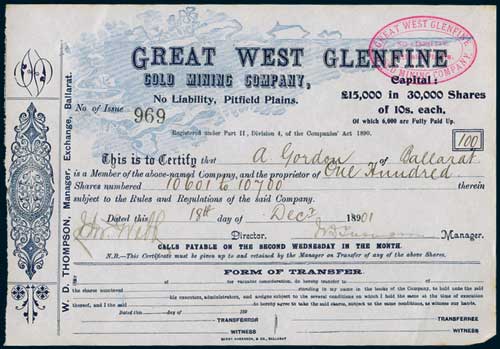 GREAT WEST GLENFINE
GOLD MINING COMPANY,
No Liability, Pitfield Plains.
GREAT WEST GLENFINE
GOLD MINING COMPANY
Capital:
£15,000 in 30,000 Shares
of 10s. each,
Of which 6,000 are Fully Paid Up.
No of Issue 969
Registered under Part II, Division 4, of the Companies' Act 1890.
100
This is to Certify that A. Gordon of Ballarat
is a Member of the above-named Company, and the proprietor of One Hundred
Shares numbered 10601 to 10700 therein
subject to the Rules and Regulations of the said Company.
Dated this 18th day of Decr 18901
Director. Manager.
CALLS PAYABLE ON THE SECOND WEDNESDAY IN THE MONTH.
N.B.—This Certificate must be given up to and retained by the Manager on Transfer of any of the above Shares.
FORM OF TRANSFER.
for valuable consideration, do hereby transfer to
the shares numbered standing in my name in the books of the Company, to hold unto the said
his executors, administrators, and assigns subject to the several conditions on which I held the same at the time of execution
thereof, and I the said do hereby agree to take the said shares, subject to the same conditions.
Dated this day of 189
TRANSFEROR TRANSFEREE
WITNESS WITNESS
BERRY, ANDERSON, & CO., BALLARAT
W. D. THOMPSON, Manager, Exchange, Ballarat.